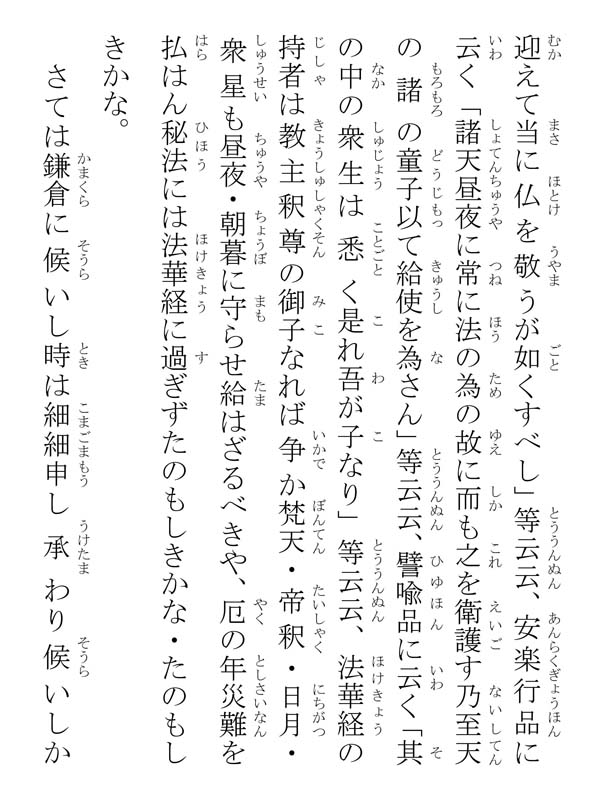 迎えて当に仏を敬うが如くすべし」等云云、安楽行品に
云く「諸天昼夜に常に法の為の故に而も之を衛護す乃至天
の諸の童子以て給使を為さん」等云云、譬喩品に云く「其
の中の衆生は悉く是れ吾が子なり」等云云、法華経の
持者は教主釈尊の御子なれば争か梵天・帝釈・日月・
衆星も昼夜・朝暮に守らせ給はざるべきや、厄の年災難を
払はん秘法には法華経に過ぎずたのもしきかな・たのもし
きかな。
さては鎌倉に候いし時は細細申し承わり候いしか